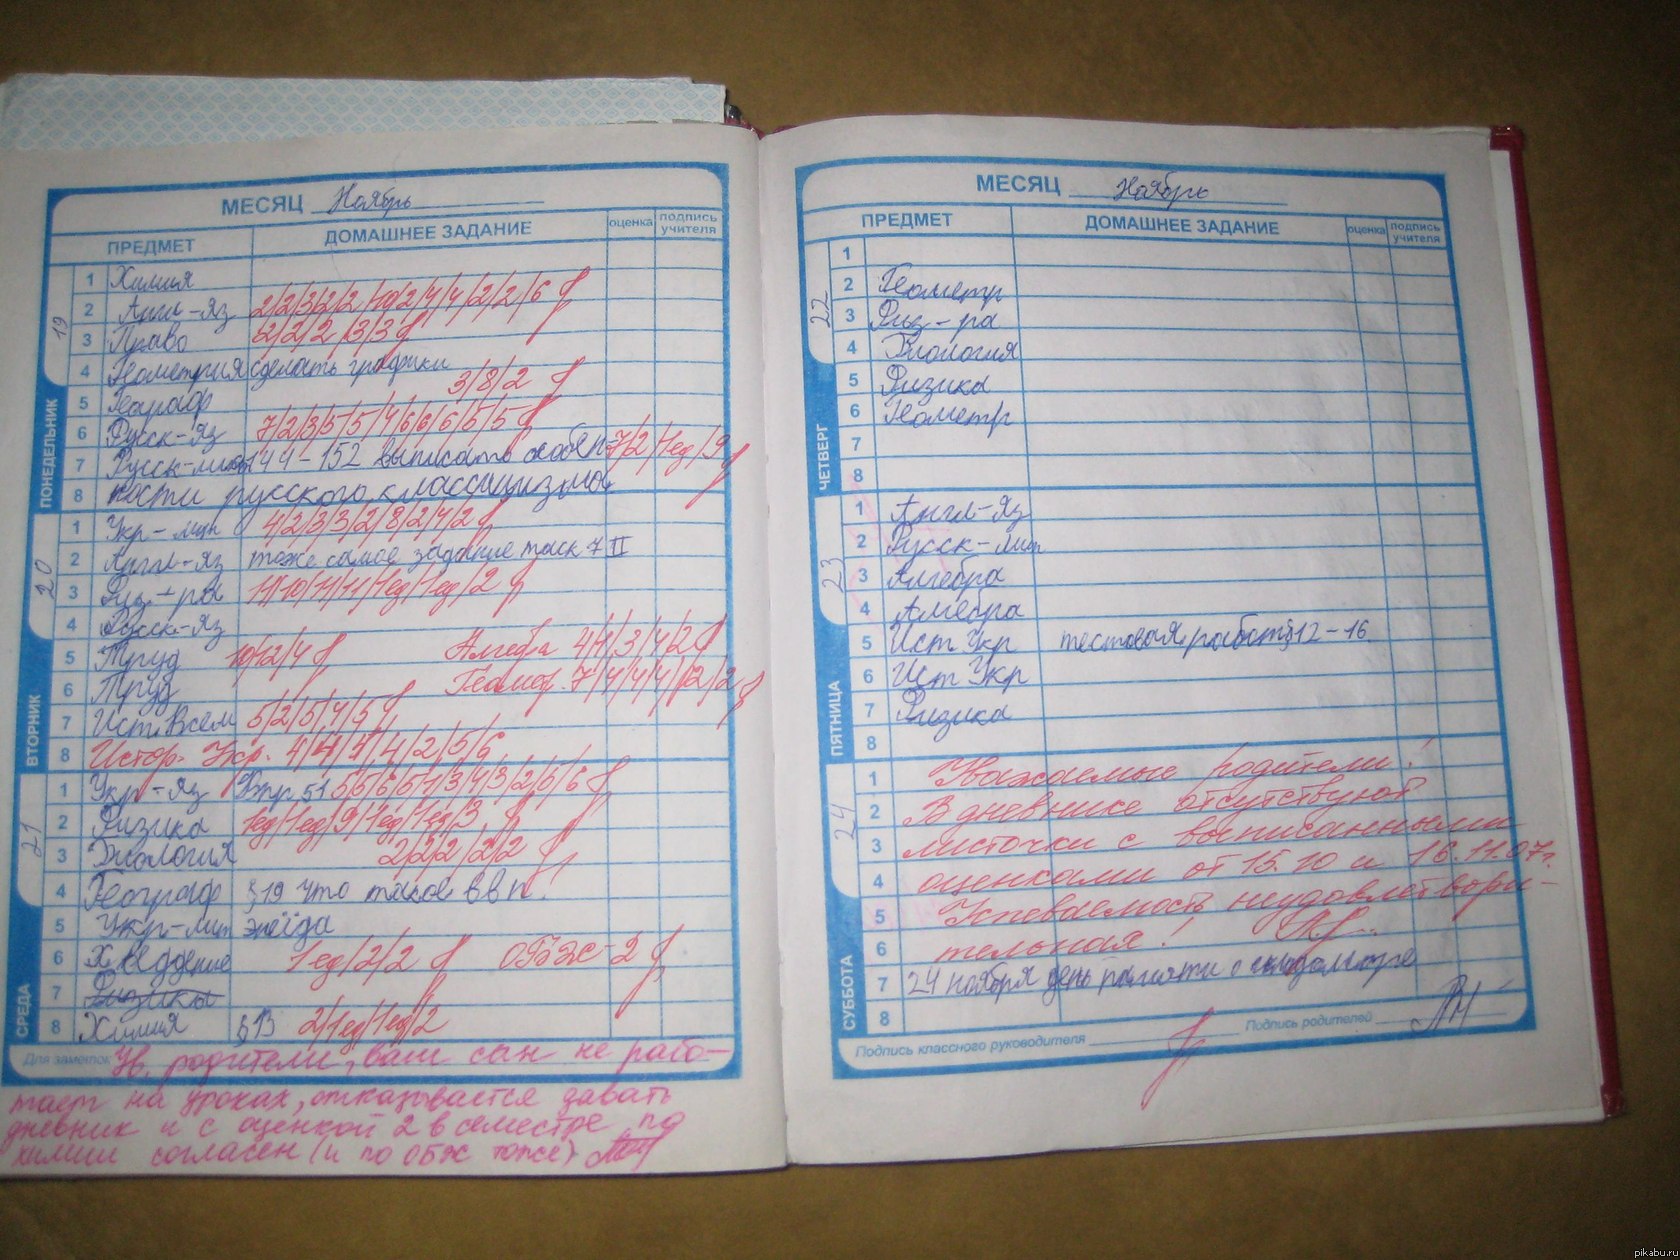 МЕСЯЦ Ноябрь
ПРЕДМЕТ ДОМАШНЕЕ ЗАДАНИЕ оценка подпись учителя
ПОНЕДЕЛЬНИК 19
1 Химия
2 Англ-яз 2/2/3/2/2/ /2/4/4/2/2/6
3 Право 2/2/2/3/3
4 Геометрия сделать графики
5 Географ 3/8/2
6 Русск-яз 7/2/3/5/5/4/6/6/6/5/5
7 Русск-лит 144-152 выписать особен 7/2/1ед/9
8 ности русского классицизма
ВТОРНИК 20
1 Укр-лит 4/2/3/3/2/8/2/4/2
2 Англ-яз тоже самое задание таск 7 II
3 Физ-ра 11/10/11/11/1ед/1ед/2
4 Русск-яз
5 Труд 10/12/4 Алгебра 4/1/3/4/2
6 Труд Геометр. 7/4/4/4/ /2/2
7 Ист. Всем 5/2/5/4/5
8 Истор. Укр. 4/4/4/4/2/5/6
СРЕДА 21
1 Укр-яз Впр 51 5/5/6/5/1/3/4/3/2/5/6
2 Физика 1ед/1ед/9/1ед/1ед/3
3 Экология 2/2/2/2/2
4 Географ §19 что такое ВВП!
5 Укр-лит энеїда
6 Х ведение 1ед/2/2 ОБЖ-2
7 Физика
8 Химия §13 2/1ед/1ед/2
Для заметок Ув. родители, ваш сын не рабо-
тает на уроках, отказывается давать
дневник и с оценкой 2 в семестре по
химии согласен (и по ОБЖ тоже)
МЕСЯЦ Ноябрь
ПРЕДМЕТ ДОМАШНЕЕ ЗАДАНИЕ оценка подпись учителя
ЧЕТВЕРГ 22
1
2 Геометр
3 Физ-ра
4 Биология
5 Физика
6 Геометр
7
8
ПЯТНИЦА 23
1 Англ-Яз
2 Русск-лит
3 Алгебра
4 Алгебра
5 Ист Укр тестовая работа §12-16
6 Ист Укр
7 Физика
8
СУББОТА 24
1 Уважаемые родители!
2 В дневнике отсутствуют
3 листочки с выписанными
4 оценками от 15.10 и 16.11.07г.
5 Успеваемость неудовлетвори-
6 тельная!
7 24 ноября день памяти о голодоморе
8
Подпись классного руководителя Подпись родителей
pikabu.ru